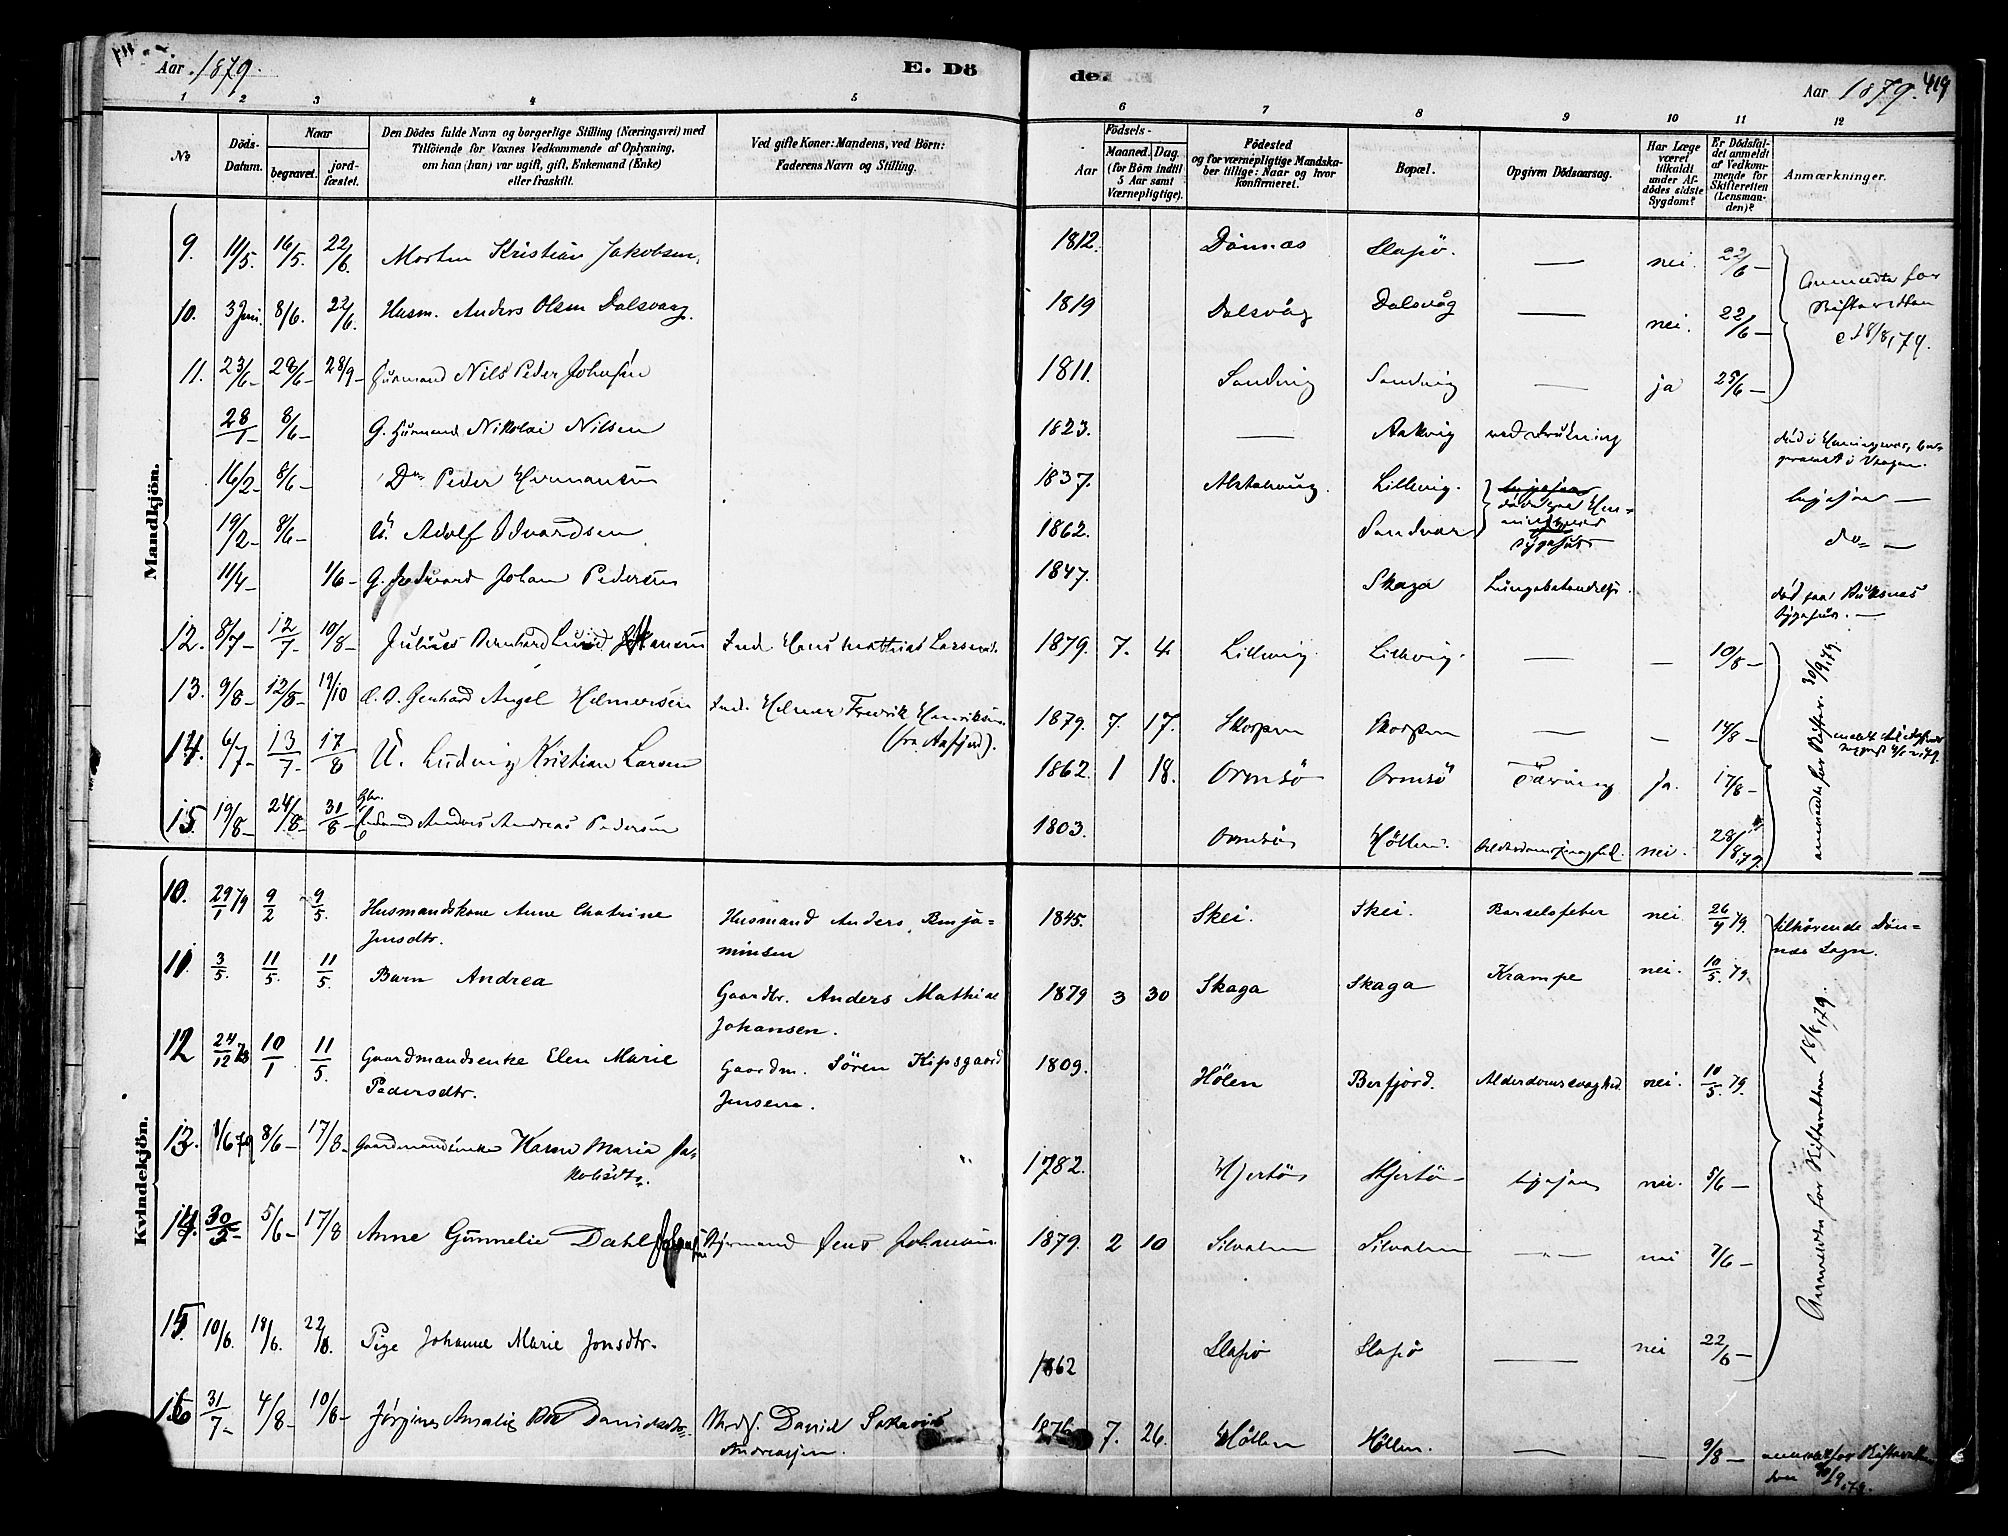 Aar 1879.
E. Dö
de.
Aar 1879. 419
1 2 3 4 5 6 7 8 9 10 11 12
No
Döds-
Datum.
Naar
begravet.
jord-
fæstet.
Den Dödes fulde Navn og borgerlige Stilling (Næringsvei) med
Tilföiende for Voxnes Vedkommende af Oplysning,
om han (hun) var ugift, gift, Enkemand (Enke)
eller fraskilt.
Ved gifte Koner: Mandens, ved Börn:
Faderens Navn og Stilling.
Födsels-
Aar
Maaned. Dag.
(for Börn indtil
5 Aar samt
Værnepligtige).
Födested
og for værnepligtige Mandska-
ber tillige: Naar og hvor
konfirmeret.
Bopæl.
Opgiven Dödsaarsag.
Har Læge
været
tilkaldt
under Af-
dödes sidste
Sygdom?
Er Dödsfal-
det anmeldt
af Vedkom-
mende for
Skifteretten
(Lensman-
den)?
Anmærkninger.
Mandkjön.
9. 11/5. 16/5. 22/6. Morten Kristian Jakobsen. 1812. Dönnæs Slapö. — nei. 22/6 —
10. 3 Juni. 8/6. 22/6. Husm. Anders Olsen Dalsvaag. 1819 Dalsvåg Dalsvåg — nei. 22/6 —
11. 23/6 — 29/6 — 28/9 — Nils Peder Johnsen 1811. Sandvig Sandvig — ja 25/6 —
Anmeldte for
Skifteretten
d 18/8, 79.
28/1 — 8/6 — G. Nikolai Nilsen 1823. — Aakvig ved Drukning
16/2 — 8/6 — Do Peder Hermansen 1837. Alstahoug. Lillevig.
19/2 — 8/6 — U. Adolf Edvardsen 1862. Sandvær do —
sygehus
11/4 1/6 — G. Johan Pedersen 1847. Skaga
12. 8/7 — 12/7 — 10/8 — Julius Bernhard Lund Hansen Ind. Hans Mathias Larsen 1879. 7. 4. Lillevig. Lillevig. — — 10/8 —
13. 9/8 — 12/8 — 19/10 Gerhard Angel Helmersen Ind. Helmer Fredrik Henriksen
(fra Aafjord). 1879. 7. 17. Skorpen Skorpen — — 14/8 —
14. 6/7 — 13/7 — 17/8 U. Ludvig Kristian Larsen 1862 1 18. Ormsö Ormsö Tæring Ja. 17/8 —
15. 19/8 — 24/8 — 31/8 — Anders Andreas Pedersen 1803. Ormsö Höllen. nei. 28/8, 79.
Kvindekjön.
10. 29/1 79 9/2 9/5. Husmandskone Anne Chatrine
Jensdtr. Husmand Anders Benja-
minsen 1845. Skei. Skei. Barselsfeber nei 26/4 79. tilhörende Dön-
næs Sogn.
11. 3/5. 11/5. 11/5. Barn Andrea Gaardbr. Anders Mathias
Johansen. 1879 3 30 Skaga Skaga Krampe nei. 10/5. 79.
12 24/12 78 10/1 11/5. Gaardmandsenke Elen Marie
Pedersdtr. Gaardm. Sören Kipsgaard
Jensen. 1809. Hölen Berfjord. Alderdomssvaghed. nei. 10/5. 79.
13. 1/6 79 8/6 — 17/8. Gaardmandsenke Karen Maria Ja-
kobsdtr. " 1782. Hjertö Hjertö — nei. 5/6 —
14. 30/3 5/6 — 17/8 Anne Gunnelie Dahl Jens Johnsen 1879. 2 10 Silvalen Silvalen — " — nei 7/6 —
15 10/6. 18/6. 22/6. Pige Johanne Marie Jonsdtr. 1862 Slapö Slapö — nei 22/6 —
Anmeldte for Skifteretten 18/8, 79.
16 31/7 — 4/8 — 10/8 — Davidsdtr. David
Andreassen. 1876 7. 26. Höllen Höllen. — — 9/8 — anmeldt for Skifteretten
den 30/9, 79.